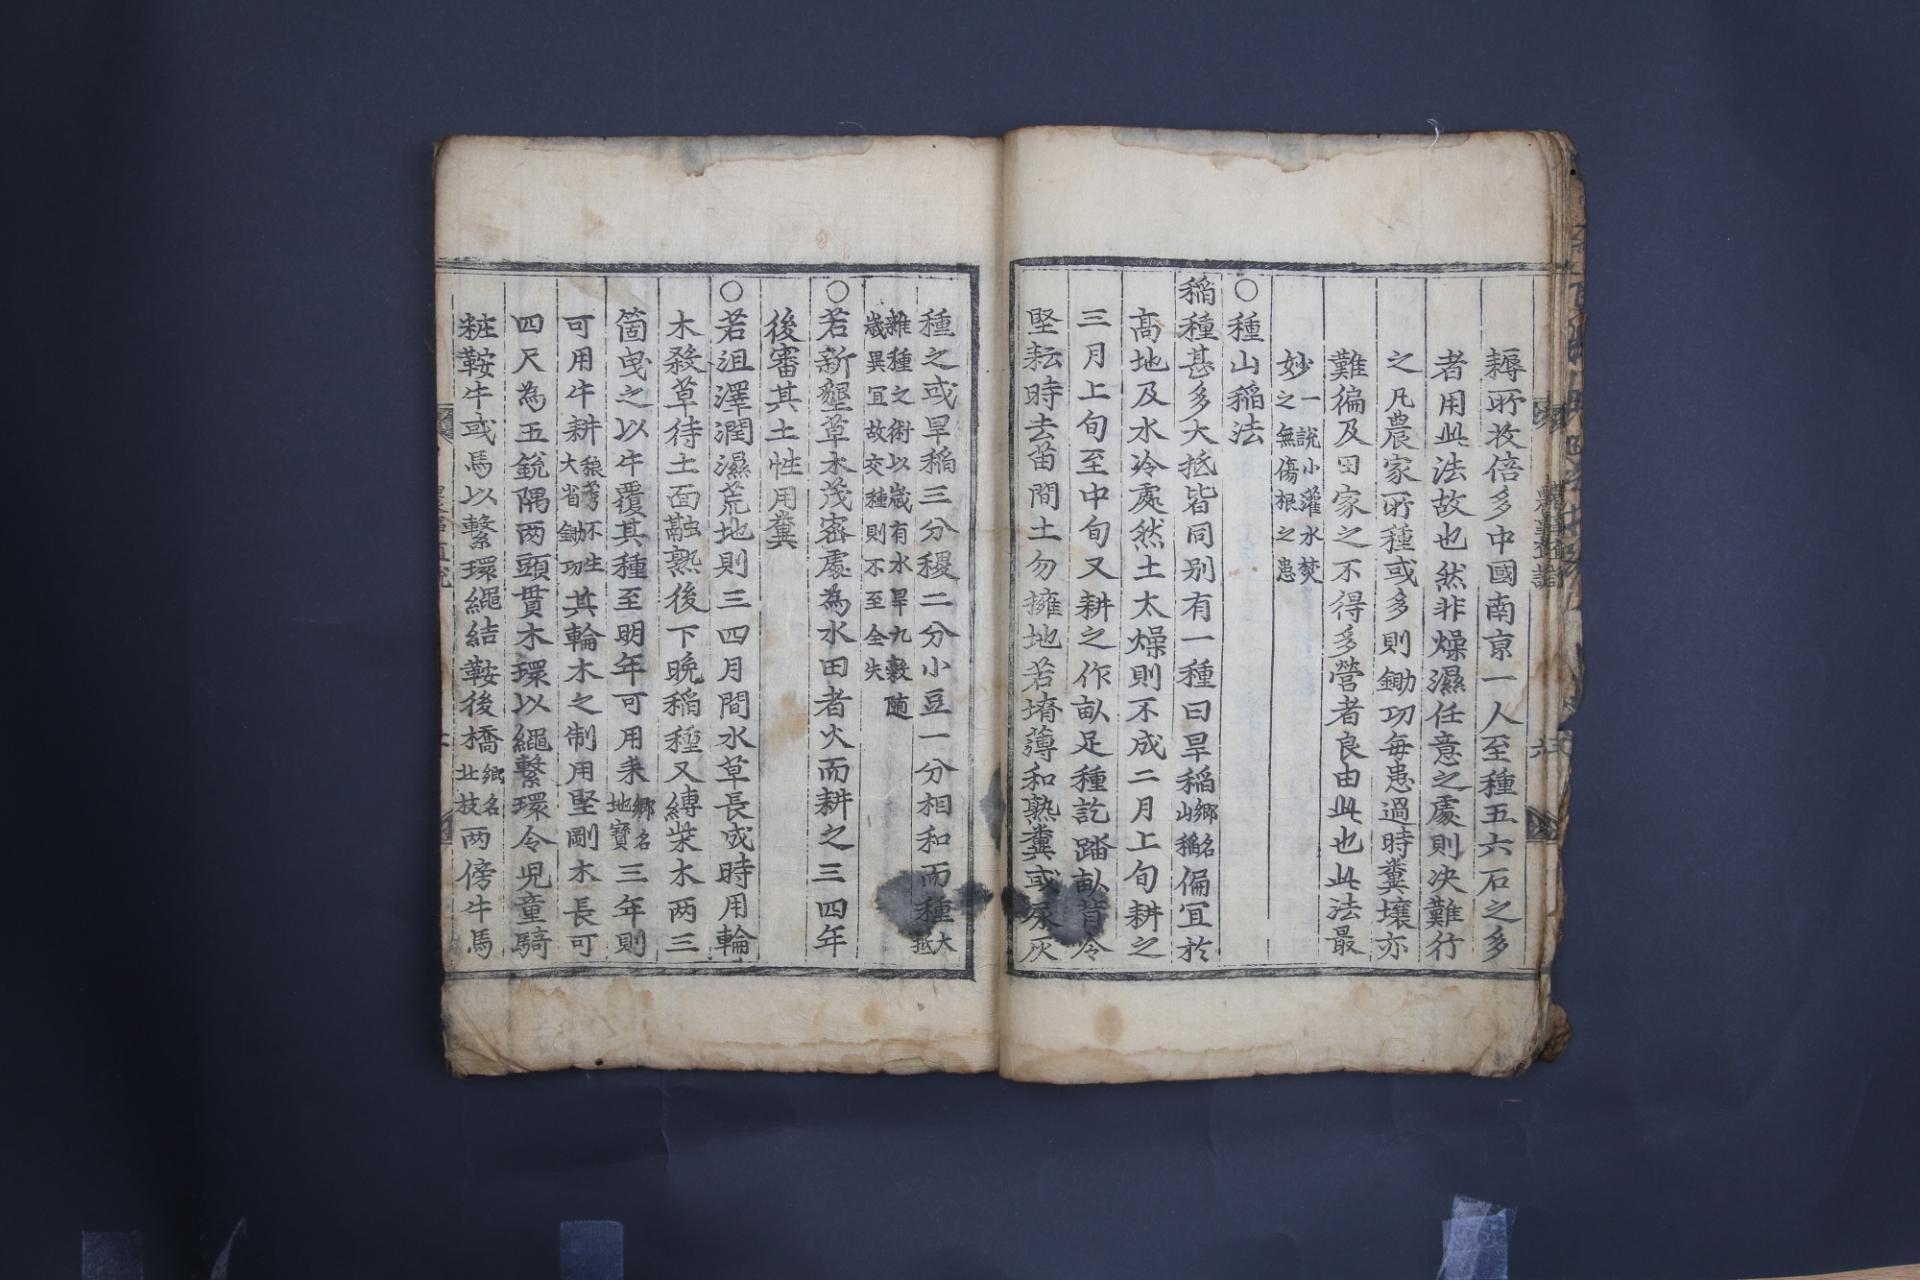 耨所收倍多中國南京一人至種五六石之多
者用此法故也然非燥濕任意之處則决難行
之凡農家所種或多則鋤功每患過時糞壤亦
難徧及田家之不得多營者良由此也此法最
妙一說小灌水焚
之無傷根之患
○種山稻法
稻種甚多大抵皆同别有一種曰旱稻鄉名山稻偏宜於
髙地及水冷處然土太燥則不成二月上旬耕之
三月上旬至中旬又耕之作畝足種訖踏畝背令
堅耘時去苗間土勿擁地若塉薄和熟糞或尿灰
種之或旱稻三分稷二分小豆一分相和而種大抵
雜種之術以歲有水旱九穀隨
歲異宜故交種則不至全失
○若新墾草木茂密處為水田者火而耕之三四年
後審其土性用糞
○若沮澤潤濕荒地則三四月間水草長成時用輪
木殺草待土面融熟後下晩稻種又縛柴木两三
箇曳之以牛覆其種至明年可用耒鄉名地寶三年則
可用牛耕稂莠不生大省鋤功其輪木之制用堅剛木長可
四尺為五銳隅两頭貫木環以繩繫環令児童騎
粧鞍牛或馬以繫環繩結鞍後橋鄉名北枝两傍牛馬